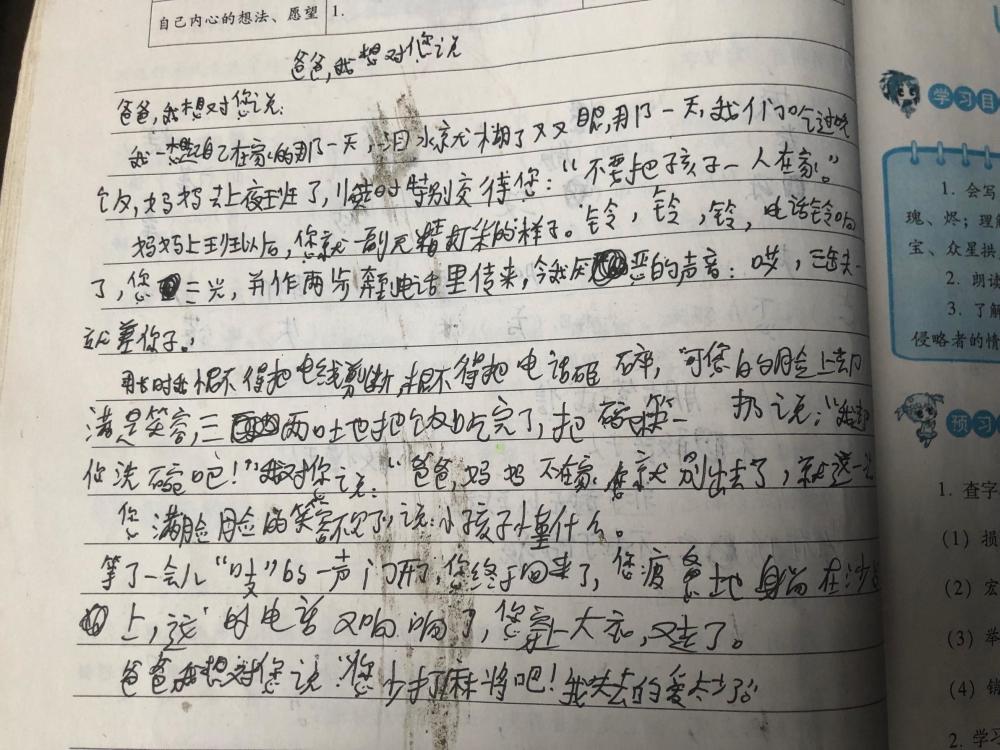 自己内心的想法、愿望 1.
爸爸,我想对您说
爸爸,我想对您说:
我一想起自己在家的那一天,泪水就糊了双眼,那一天,我们吃过晚
饭,妈妈去上夜班了,临时特别交待您:“不要把孩子一人在家。”
妈妈上班以后,您就一副无精打采的样子。铃,铃,铃,电话铃响
了,您三步,并作两步奔电话里传来,令我厌恶的声音:哎,三缺一
就差你了。
那时我恨不得把电线剪断,恨不得把电话砸碎,可您的脸上却
满是笑容,三两口地把饭吃完了,把碗筷一扔说:“我
你洗碗吧!”我对你说:“爸爸,妈妈不在家,您就别出去了,就这一次
您满脸的笑容不见了,说:小孩子懂什么。
等了一会儿“吱”的一声门开了,您终于回来了,您疲惫地躺在沙发
上,这时电话又响响了,您穿上大衣,又走了。
爸爸我想对您说“您少打麻将吧!我失去的爱太多了。
学习目
1. 会写
瑰、烬;理解
宝、众星拱
2. 朗读
3. 了解
侵略者的情
预习
1. 查字
(1) 损
(2) 宏
(3) 举
(4) 销
2. 学习